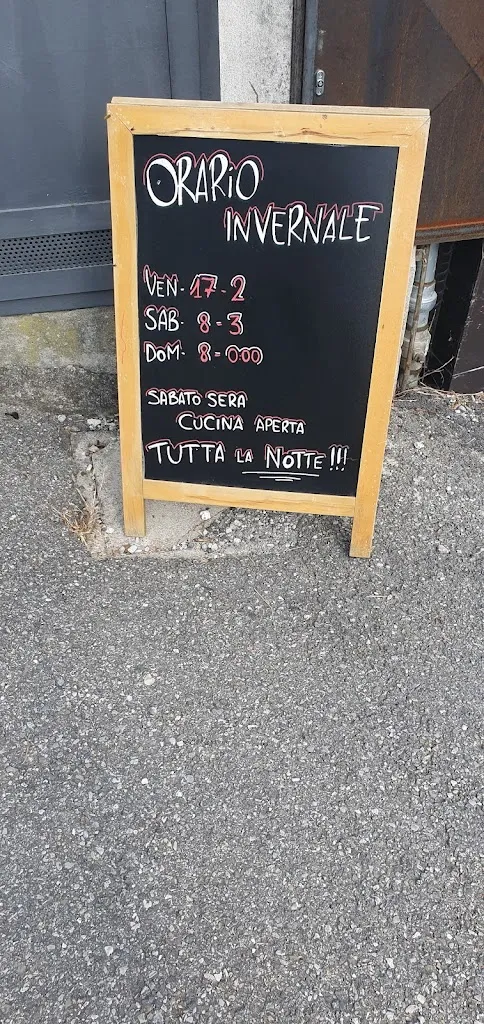 ORARIO
INVERNALE
VEN- 17-2
SAB- 8-3
DOM- 8-0:00
SABATO SERA
CUCINA APERTA
TUTTA LA NOTTE!!!